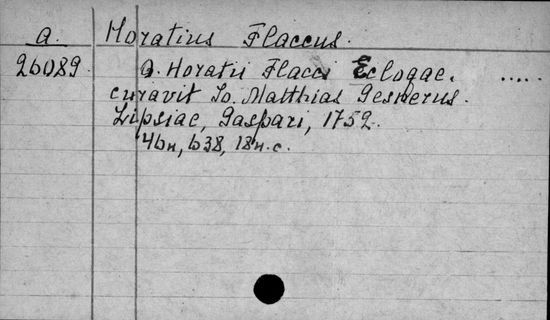 a. Horatius Flaccus.
26089. Q. Horatii Flacci Eclogae. .....
curavit Io. Matthias Gesnerus.
Lipsiae, Gaspari, 1752.
46н, 638, 18н. с.